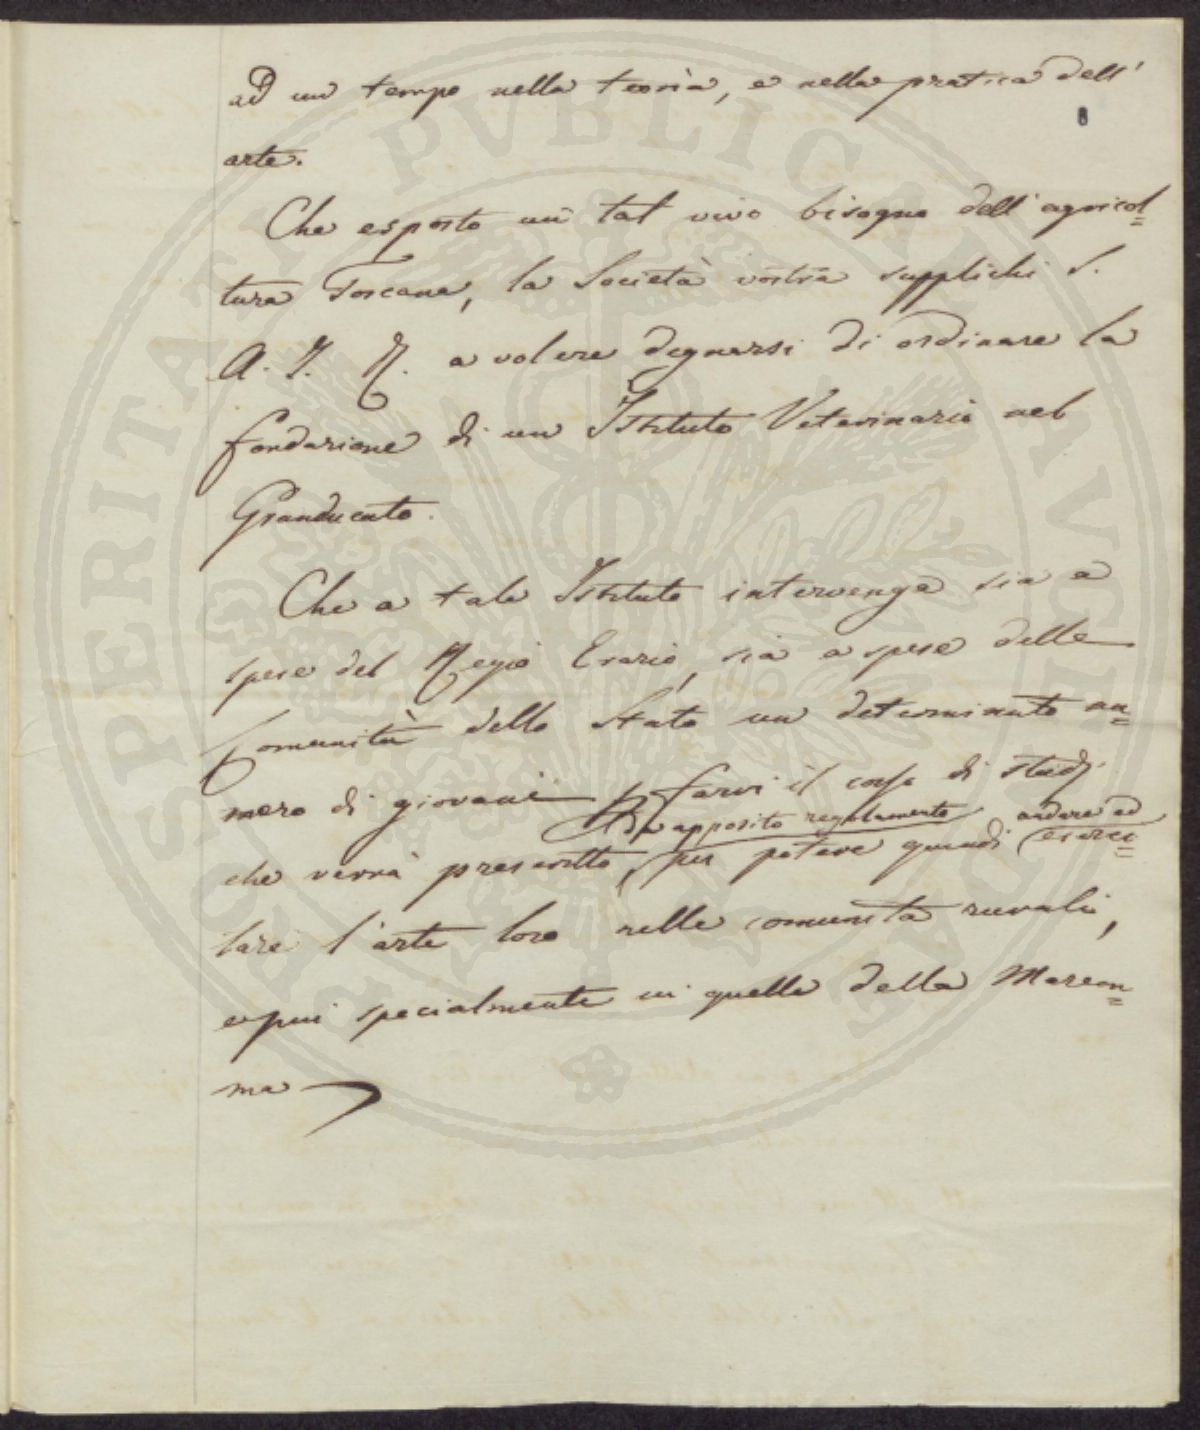 ad un tempo nella teoria, e nella pratica dell'
arte.
Che esposto un tal vivo bisogno dell'agricol=
tura Toscana, la Società vostra supplichi S.
A. I. R. a volere degnarsi di ordinare la
fondazione di un Istituto Veterinario nel
Granducato.
Che a tale Istituto intervenga sia a
spese del Regio Erario, sia a spese delle
Comunità dello Stato un determinato nu=
mero di giovani per farvi il corso di studj
da apposito regolamento andare ad
che verrà prescritto, per potere quindi eserci=
tare l'arte loro nelle comunità rurali,
e più specialmente in quelle della Marem=
ma
8
PERITATI PVBLICAE AVGENDAE